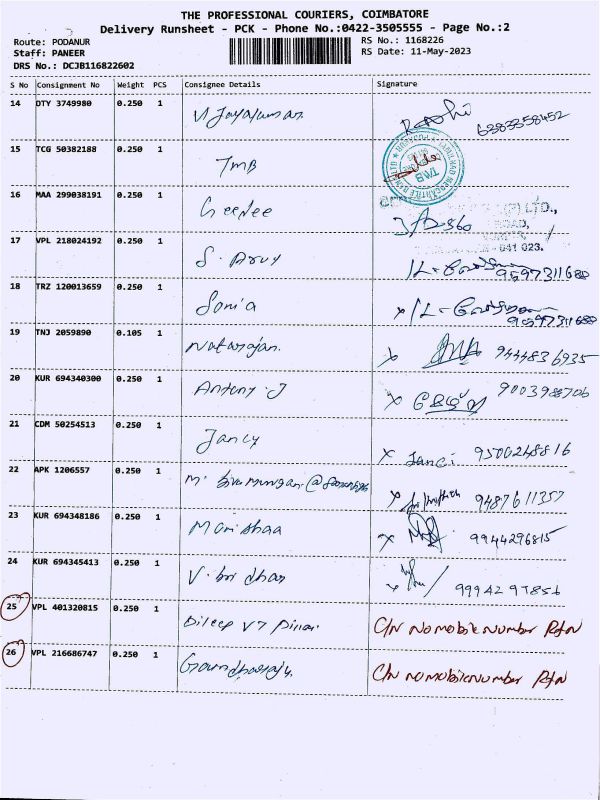 THE PROFESSIONAL COURIERS, COIMBATORE
Delivery Runsheet - PCK - Phone No.:0422-3505555 - Page No.:2
Route: PODANUR RS No.: 1168226
Staff: PANEER RS Date: 11-May-2023
DRS No.: DCJB116822602
S No Consignment No Weight PCS Consignee Details Signature
14 OTY 3749980 0.250 1 Vijayakumar 6383358452
15 TCG 50382188 0.250 1 TMB TMB
16 MAA 299038191 0.250 1 LTD.,
ROAD,
641 023.
17 VPL 218024192 0.250 1 S. 9597311688
18 TRZ 120013659 0.250 1 Sonia x 9597311688
19 TNJ 2059890 0.105 1 Natarajan. x 9444836935
20 KUR 694340300 0.250 1 Antony. J x 9003988706
21 CDM 50254513 0.250 1 Jancy x Janci 9500248816
22 APK 1206557 0.250 1 x 9487611357
23 KUR 694348186 0.250 1 x 9944296815
24 KUR 694345413 0.250 1 x
25 VPL 401320815 0.250 1 Dileep C/N No mobile number Rtn
26 VPL 216686747 0.250 1 C/N no mobile number Rtn